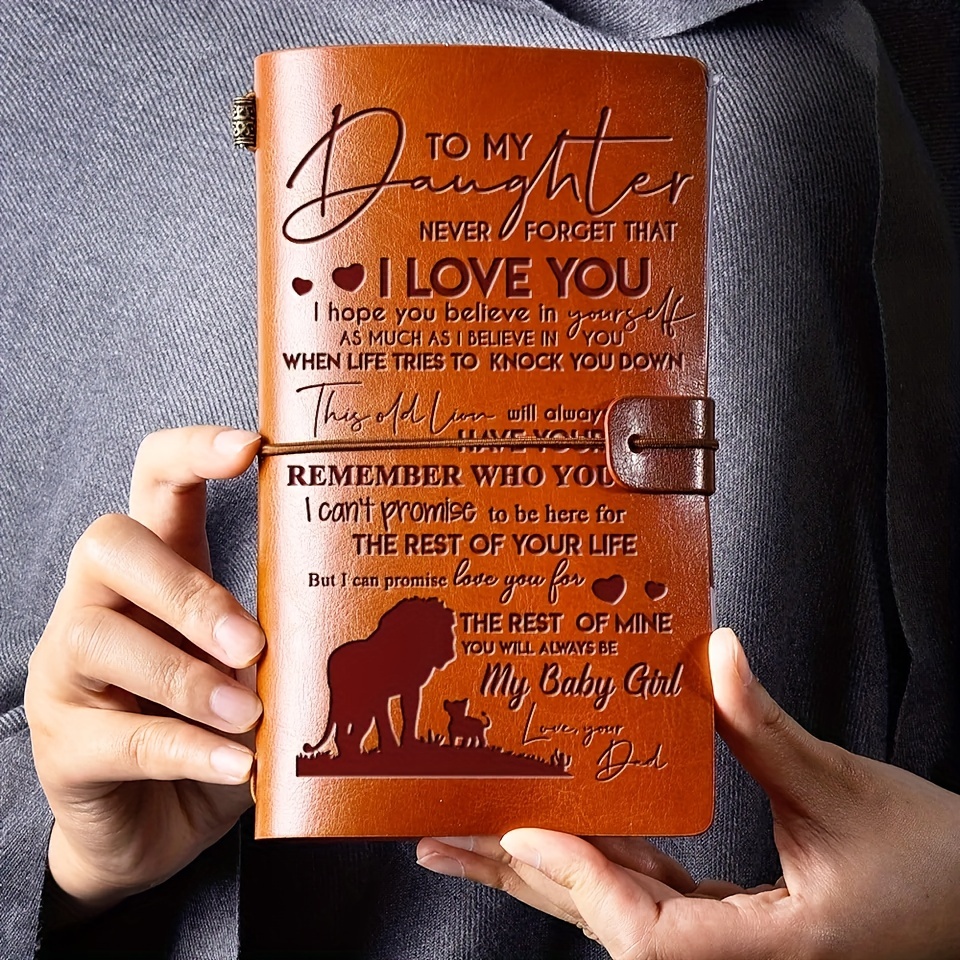 TO MY
Daughter
NEVER FORGET THAT
I LOVE YOU
I hope you believe in yourself
AS MUCH AS I BELIEVE IN YOU
WHEN LIFE TRIES TO KNOCK YOU DOWN
This old Lion will alway
HAVE YOUR
REMEMBER WHO YOU
I can't promise to be here for
THE REST OF YOUR LIFE
But I can promise love you for
THE REST OF MINE
YOU WILL ALWAYS BE
My Baby Girl
Love, your
Dad